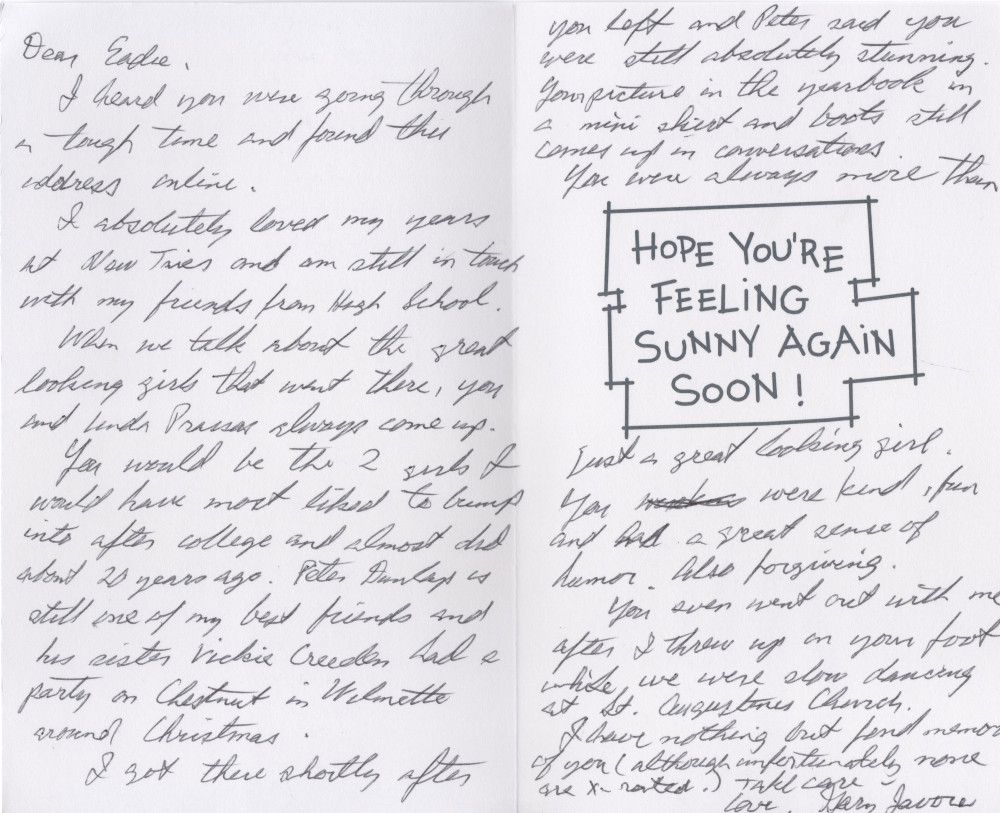 Dear Eadie,
I heard you were going through
a tough time and found this
address online.
I absolutely loved my years
at New Trier and am still in touch
with my friends from High School.
When we talk about the great
looking girls that went there, you
and Linda always come up.
You would be the 2 girls I
would have most liked to bump
into after college and almost did
about 20 years ago. Peter Dunlap is
still one of my best friends and
his sister Vickie Creeden had a
party on Chestnut in Wilmette
around Christmas.
I got there shortly after
you left and Peter said you
were still absolutely stunning.
Your picture in the yearbook in
a mini skirt and boots still
comes up in conversations.
You were always more than
HOPE YOU'RE
FEELING
SUNNY AGAIN
SOON!
just a great looking girl.
You were kind, fun
and had a great sense of
humor. Also forgiving.
You even went out with me
after I threw up on your foot
while we were slow dancing
at St. Augustines Church.
I have nothing but fond memor
of you (although unfortunately none
are X-rated.) Take care
Love, Gary